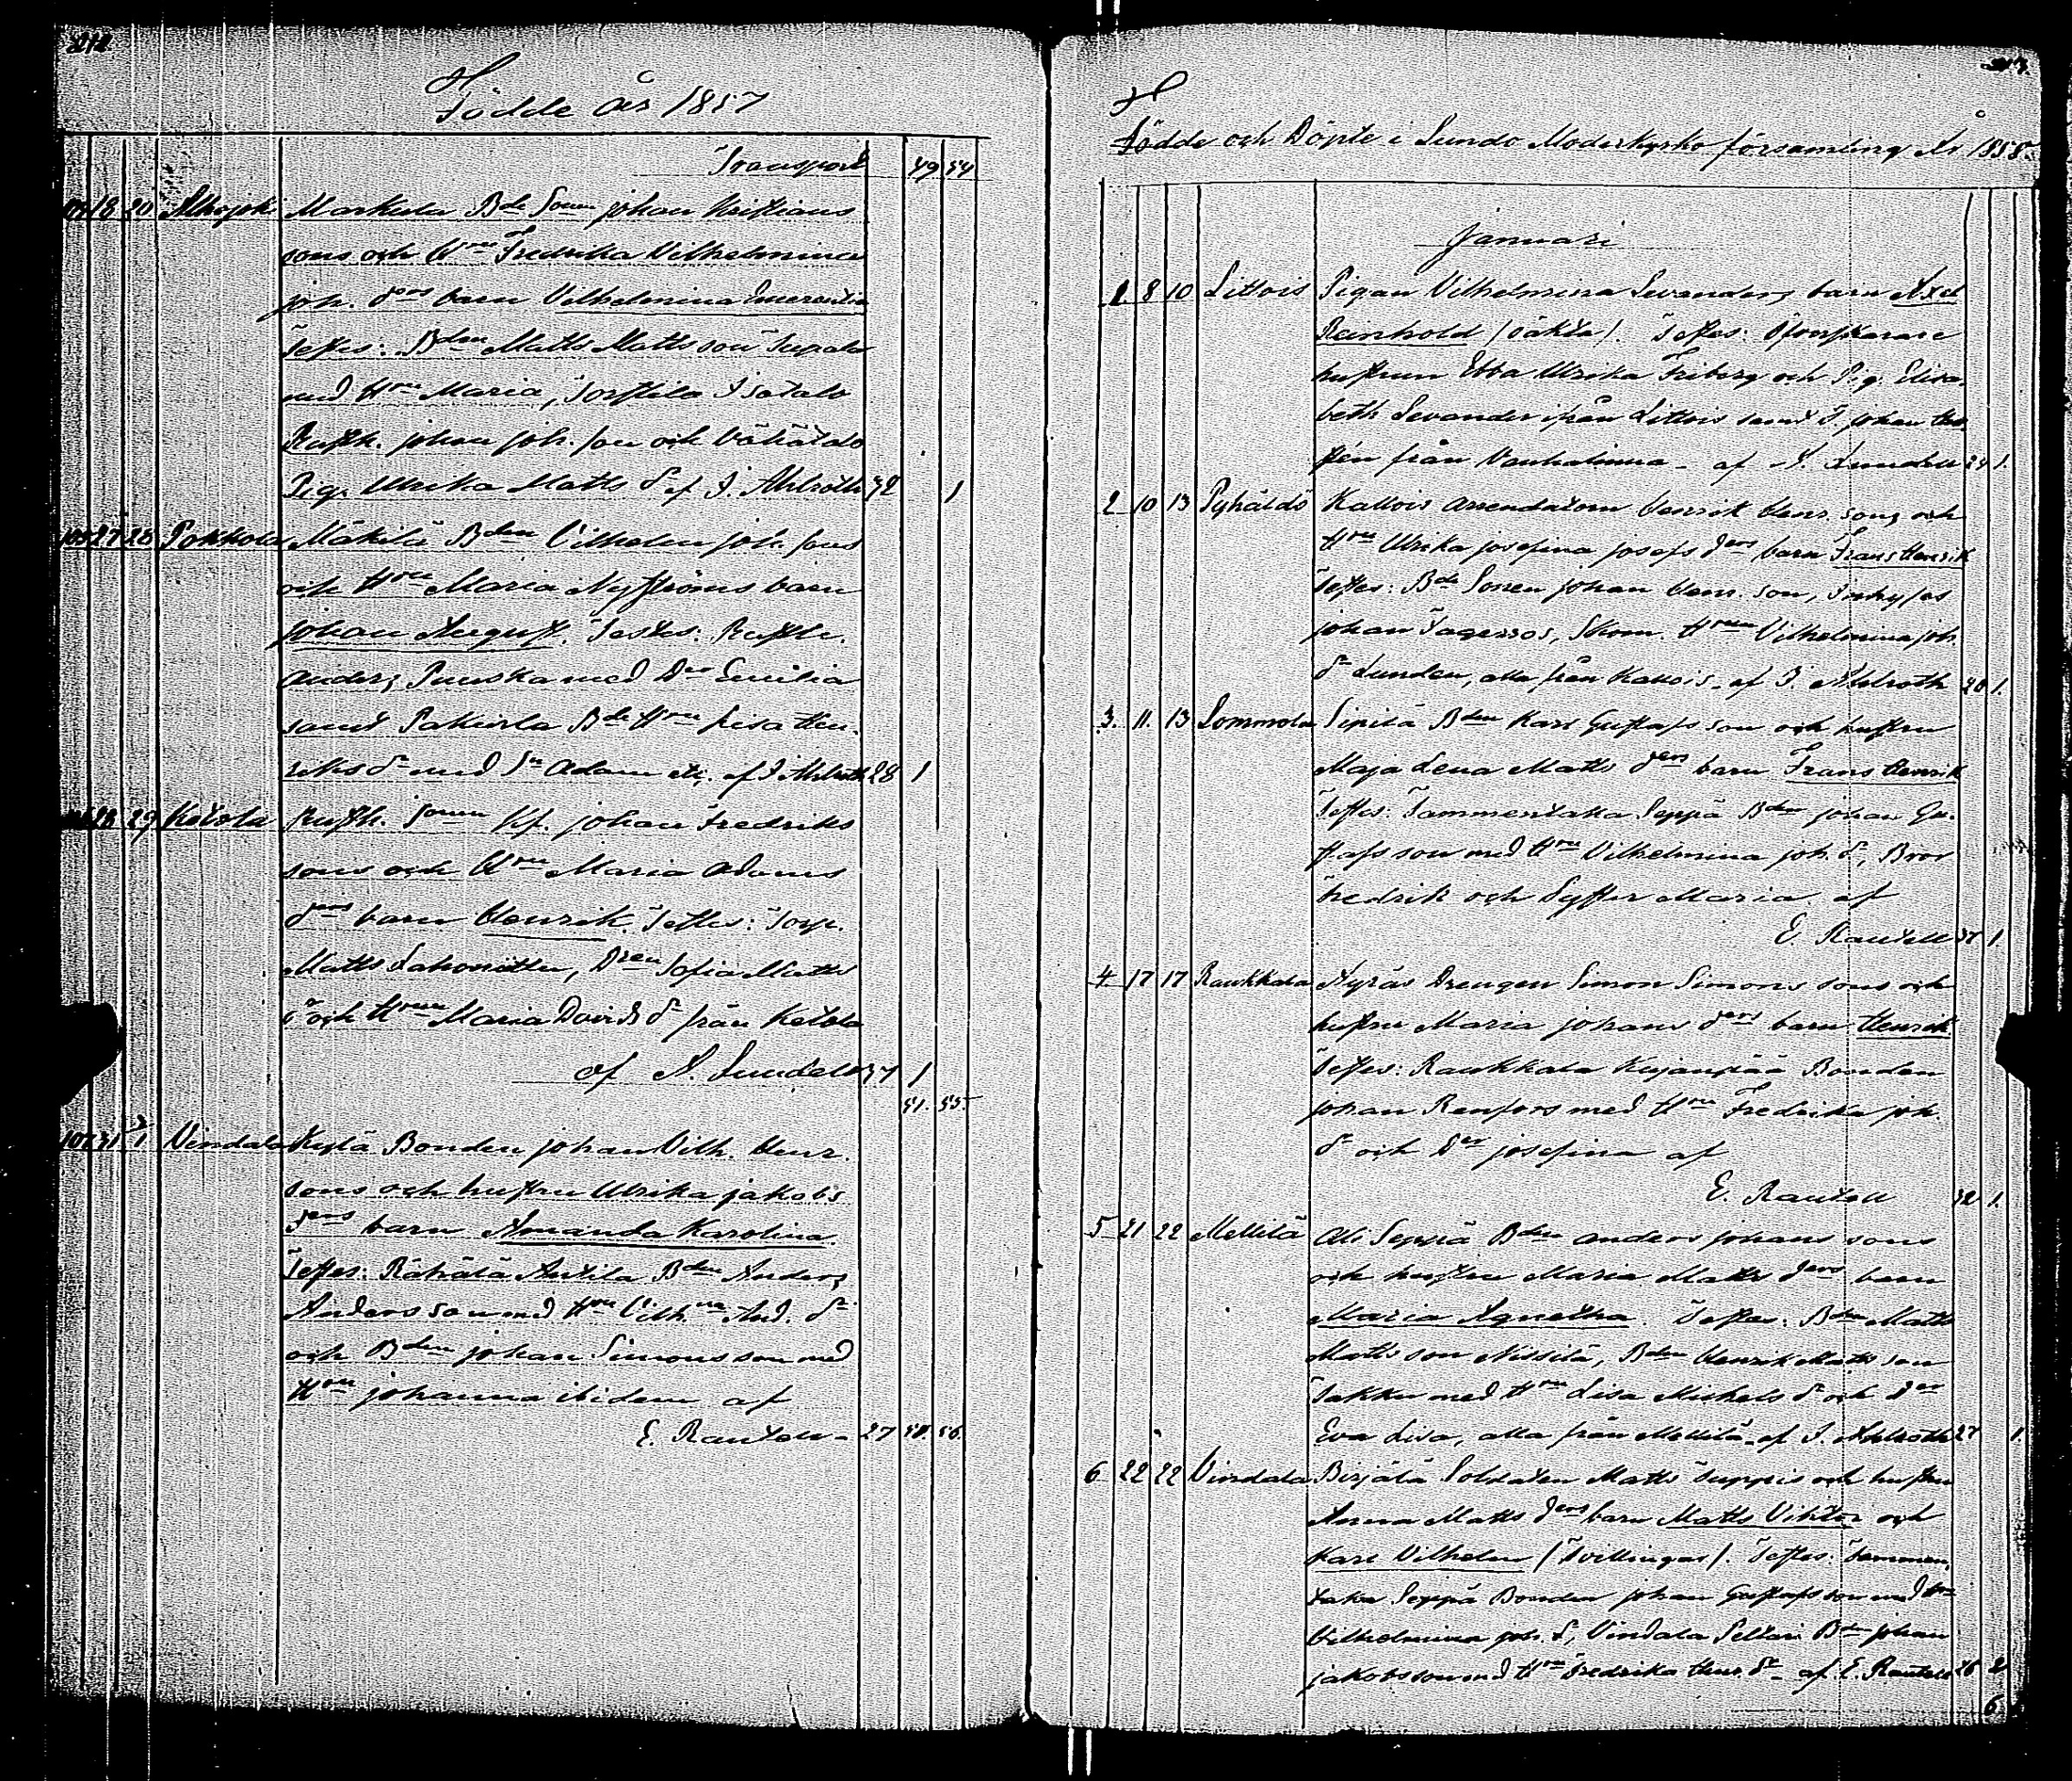 212
Födde år 1857
Transport 49 54
18 20 Alhojoki Markula Bde Sonen Johan Kristians
sons och Hrus Fredrika Vilhelmina
joh. drs barn Vilhelmina Emerentia
Testes: Bden Matts Mattsson Sepala
med Hru Maria, Isotalo
Rusth. johan joh. son och Vähätalo
Pig. Ulrika Matts dr af I. Ahlroth 32 1
105 27 28 Pokkola Mäkilä Bden Vilhelm joh. sons
och Hrus Maria Nyströms barn
johan August. Testes: Rusth.
Anders Puuska med Dr Emilia
samt Pakurla Bde Hru Lisa Hen-
riks dr med Sn Adam etc. af I Ahlroth 28 1
28 29 Ketola Rusth. Sonen Kf. johan Fredriks
sons och Hrus Maria Adams
drs barn Henrik. Testes: Torp.
Matts Lahonitty, Dren Sofia Matts
dr och Hrun Maria Davids dr från Ketola
af A. Lundell 37 1
51. 55.
107 31 1 Vindala Kylä Bonden johan Vilh. Henr.
sons och hustru Ulrika jakobs
drs barn Amanda Karolina.
Testes: Rähälä Antila Bden Anders
Andersson med Hru Vilhna And. dr
och Bden johan Simonsson med
Hru johanna ibidem af
E. Rantell - 27 51. 56.
213.
Födde och Döpte i Lundo Moderkyrko församling År 1858.
Januari
1 8 10 Littois Pigan Vilhelmina Levanders barn Axel
Reinhold (oäkta). Testes:
hustrun Ebba Ulrika Friberg och Pig. Elisa-
beth Levander ifrån Littois samt johan
från Vanhalinna - af A. Lundell 24 1.
2 10 13 Pyhältö Kallois arrendatorn Henrik Henr. sons och
Hrus Ulrika josefina josefs drs barn Frans Henrik
Testes: Bde Sonen johan Henr. son, Inhyses
johan Fagerros, Skom. Hrun Vilhelmina joh.
dr Lunden, alla från Kallois. af I. Ahlroth 20 1.
3. 11. 13 Lommola Sipilä Bden Karl Gustafs son och hustru
Maja Lena Matts drs barn Frans Henrik
Testes: Tammentaka Seppä Bden johan Gu-
stafsson med Hru Vilhelmina joh. dr, Bror
Fredrik och Syster Maria af
E. Rantell 37 1.
4 17 17 Raukkala Äyräs Drengen Simon Simons sons och
hustru Maria johans drs barn Henrik
Testes: Raukkala Kujanpää Bonden
johan Renfors med Hru Fredrika joh.
dr och Dr josefina af
E. Rantell 32 1.
5 21 22 Mellilä Ali Seppä Bden Anders johans sons
och hustru Maria Matts drs barn
Maria Agnetha. Testes: Bden Matts
Matts son Nissilä, Bden Henrik Matts son
Jakku med Hru Lisa Michels dr och Dr
Eva Lisa, alla från Mellilä af I. Ahlroth 27 1.
6 22 22 Vindala Birjälä Soldaten Matts Suppis och hustru
Anna Matts drs barn Matts Viktor och
Karl Vilhelm (Tvillingar). Testes: Tammen-
taka Seppä Bonden johan Gustafsson med Hru
Vilhelmina joh. dr, Vindala Seltari Bden johan
jakobsson med Hru Fredrika Henr. dr af E. Rantell 26 2
6